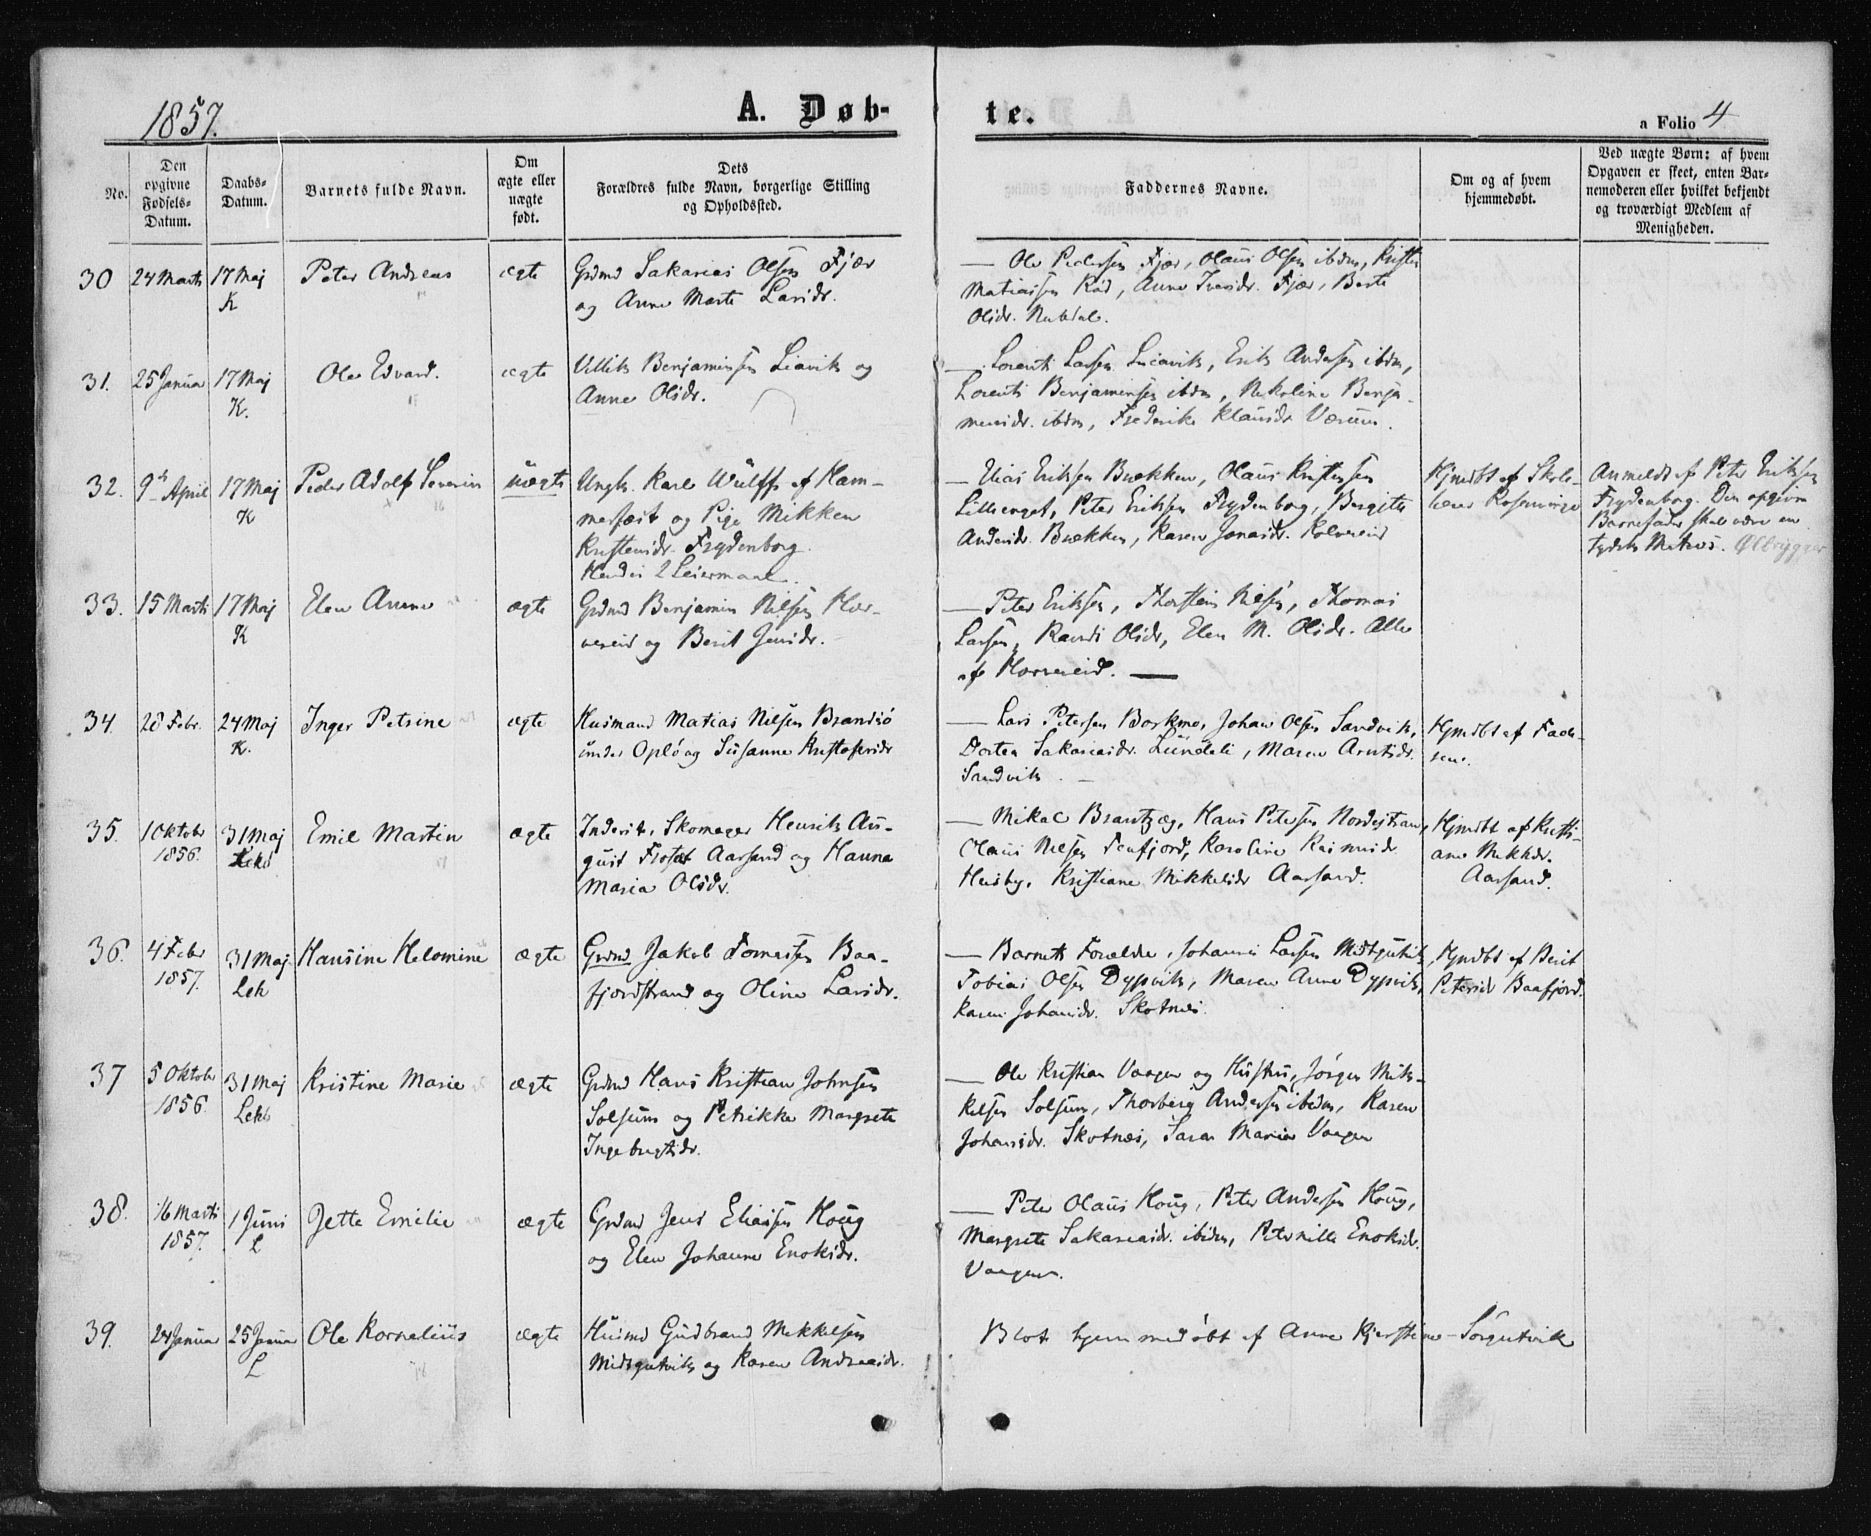 1857.
A. Døb-
te.
a Folio 4
No.
Den
opgivne
Fødsels-
Datum.
Daabs-
Datum.
Barnets fulde Navn.
Om
ægte eller
uægte
født.
Dets
Forældres fulde Navn, borgerlige Stilling
og Opholdssted.
Faddernes Navne.
Om og af hvem
hjemmedøbt.
Ved uægte Børn: af hvem
Opgaven er skeet, enten Bar-
nemoderen eller hvilket bekjendt
og troværdigt Medlem af
Menigheden.
30
24 Marts
17 Maj
K
Peter Andreas
ægte
Grdmd Sakarias Olsen Fjær
og Anne Marte Larsdr.
— Ole Pedersen Fjær, Olaus Olsen ibdm,
Matiassen Rød, Anne Iversdr. Fjær, Berte
Olsdr.
31.
25 Januar
17 Maj
K.
Ole Edvard.
ægte
Benjaminsen Liavik og
Anne Olsdr.
— Lorents Larsen Liavik, Erik Andersen ibdm,
Lorents Benjaminsen ibdm, Nikoline Benja-
minsdr. ibdm, Frederike Klausdr Værum.
32.
9de April
17 Maj
K
Peder Adolf Severin
uægte
Ungk. Karl Wulff af Ham-
merfæst og Pige Mikken
Kristensdr. Frydenborg.
Hendes 2 Leiermaal.
— Elias Eriksen Brækken, Olaus Kristensen
Lillienget, Peter Eriksen Frydenborg, Bergite
Andersdr. Brækken, Karen Jonasdr. Kolvereid
Hjmdbt af Skole-
lærer Rosenvinge
Anmeldt af Peter Eriksen
Frydenborg. Den opgivne
Barnefader skal være en
tydsk Matros. Ølbrygger
33.
15 Marts
17 Maj
K
Elen Anne
ægte
Grdmd Benjamin Nilsen Hor-
vereid og Berit Jensdr.
— Peter Eriksen, Thorstein Nilsen, Thomas
Larsen, Randi Olsdr, Elen M. Olsdr. Alle
af Horvereid. —
34.
28 Febr.
24 Maj
K.
Inger Petrine
ægte
Husmand Matias Nilsen Brandsø
under Oplø og Susanne Kristofersdr
— Lars Petersen Borkmo, Johan Olsen Sandvik,
Dortea Sakariasdr. Lundeli, Maren Arntsdr.
Sandvik. —
Hjmdbt af Fade-
ren.
35.
1 Oktobr
1856.
31 Maj
Lekø
Emil Martin
ægte
Inderst, Skomager Henrik Au-
gust Aarsand og Hanna
Maria Olsdr.
— Mikal Brantzæg, Hans Petersen Nordestrand,
Olaus Nilsen Fenfjord, Karoline Rasmusdr
Husby, Kristiane Mikkelsdr Aarsand.
Hjmdbt af Kristi-
ane Mikkdr.
Aarsand.
36.
4 Febr
1857.
31 Maj
Lek
Hansine Helomine
ægte
Grdmd Jakob Tomassen Baa-
fjordstrand og Oline Larsdr.
— Barnets Forældre, Johannes Larsen Midtgutvik,
Tobias Olsen Dypvik, Maren Anne Dypvik,
Karen Johansdr. Skotnes.
Hjmdbt af Berit
Petersdr Baafjord.
37
5 Oktobr
1856
31 Maj
Lekø
Kristine Marie
ægte
Grdmd Hans Kristian Johnsen
Solsum og Petrikke Margrete
Ingebrigtsdr.
— Ole Kristian Vaagen og Hustru, Jørgen Mik-
kelsen Solsum, Thorberg Andersen ibidm, Karen
Johansdr. Skotnes, Sara Maria Vaagen
38.
16 Marts
1857.
1 Juni
L
Jette Emilie
ægte
Grdmd Jens Eliassen Houg
og Elen Johanne Enoksdr.
— Peter Olaus Houg, Peter Andersen Houg,
Margrete Sakariasdr. ibidm, Peternille Enoksdr.
Vaagen.
39.
24 Januar
25 Januar
L
Ole Kornelius
ægte
Husmd Gudbrand Mikkelsen
Midtgutvik og Karen Andreasdr.
Blot hjemmedøbt af Anne Kjerstine Sørgutvik